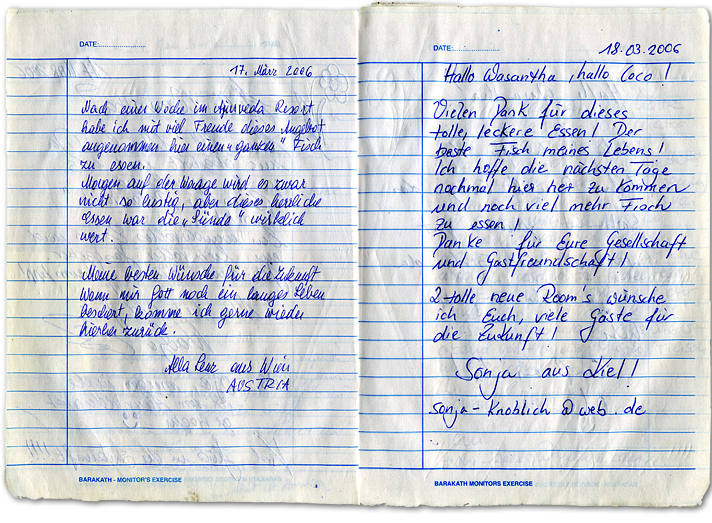 DATE:
17. März 2006
Nach einer Woche im Ayurveda Resort
habe ich mit viel Freude dieses Angebot
angenommen hier einen "ganzen" Fisch
zu essen.
Morgen auf der Waage wird es zwar
nicht so lustig, aber dieses herrliche
Essen war die "Sünde" wirklich
wert.
Meine besten Wünsche für die Zukunft
Wenn mir Gott noch ein langes Leben
beschert, komme ich gerne wieder
hierher zurück.
aus Wien
AUSTRIA
BARAKATH - MONITOR'S EXERCISE
DATE:
18.03.2006
Hallo Wasantha, hallo Coco!
Vielen Dank für dieses
tolle, leckere Essen! Der
beste Fisch meines Lebens!
Ich hoffe die nächsten Tage
nochmal hier her zu kommen
und noch viel mehr Fisch
zu essen!
Danke für Eure Gesellschaft
und Gastfreundschaft!
2 tolle neue Room's wünsche
ich Euch, viele Gäste für
die Zukunft!
Sonja aus Kiel!
sonja-Knoblich@web.de
BARAKATH MONITORS EXERCISE